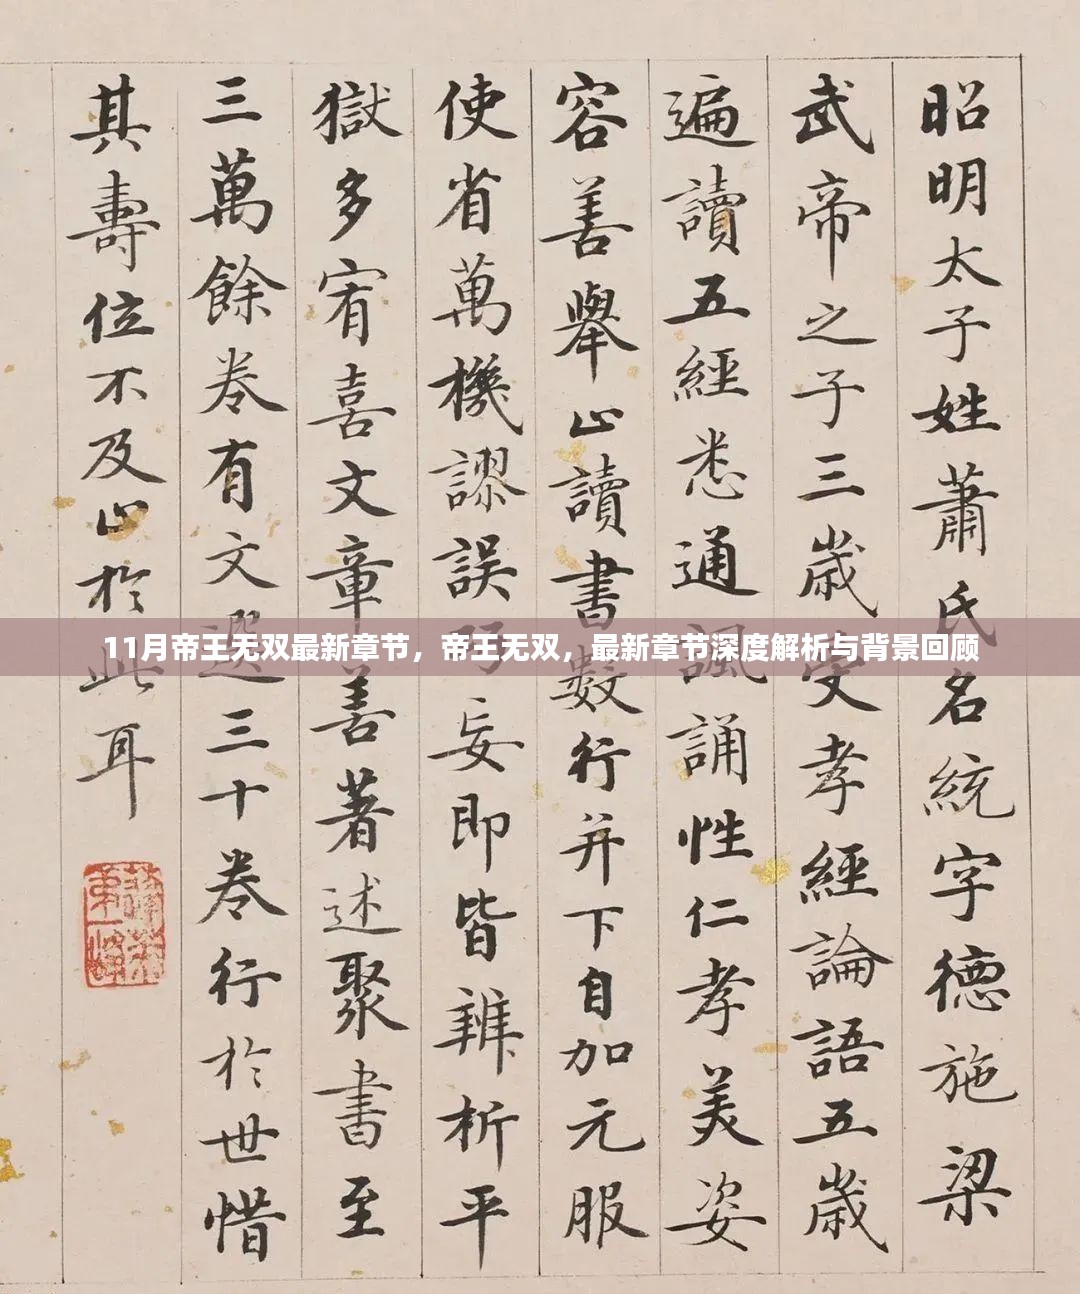 昭明太子姓蕭氏名統字德施梁
武帝之子三歲受孝經論語五歲
遍讀五經悉通諷誦性仁孝美姿
容善舉止讀書數行并下自加元服
使省萬機謬誤巧妄即皆辨析平
獄多宥喜文章善著述聚書至
三萬餘卷有文選三十卷行於世惜
其壽位不及止於此耳
11月帝王无双最新章节，帝王无双，最新章节深度解析与背景回顾